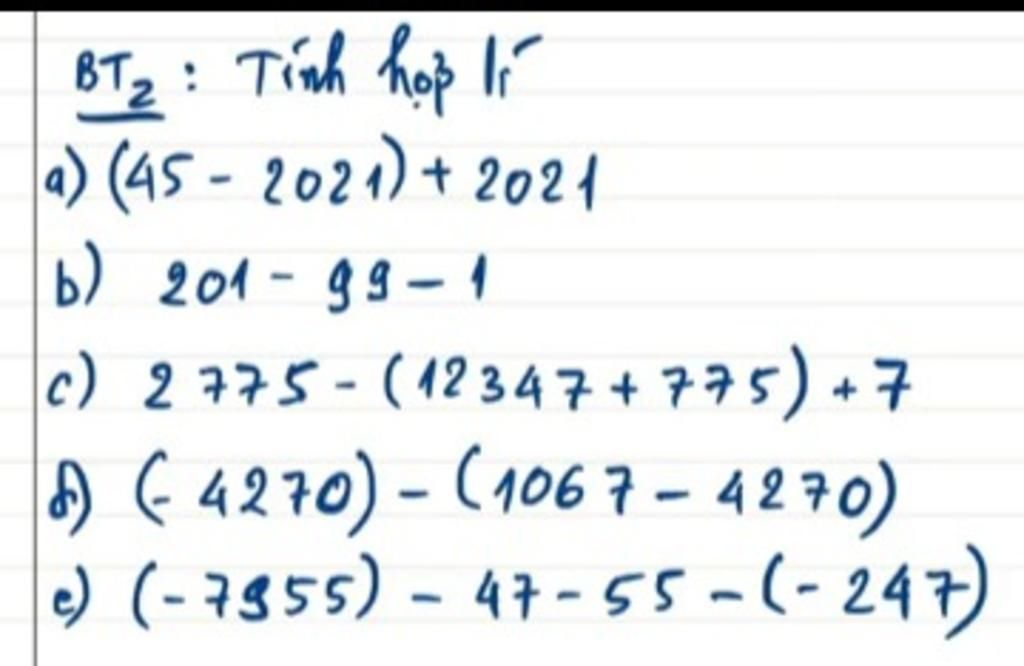 BT2 : Tính hợp lí
a) (45 - 2021) + 2021
b) 201 - 99 - 1
c) 2775 - (12347 + 775) + 7
d) (- 4270) - (1067 - 4270)
e) (- 7955) - 47 - 55 - (- 247)